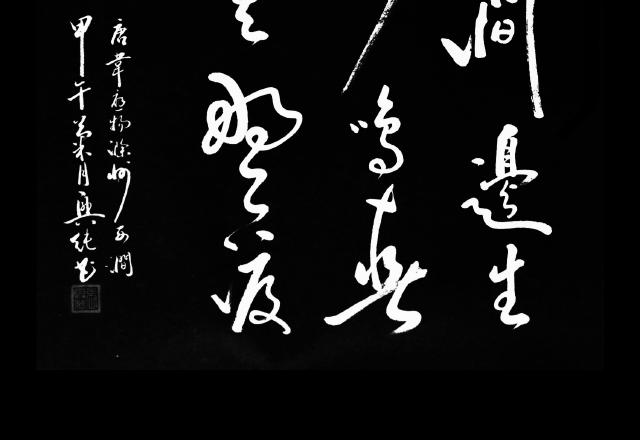 澗邊生
鳴春
野渡
唐韋應物滁州西澗
甲午月興純書